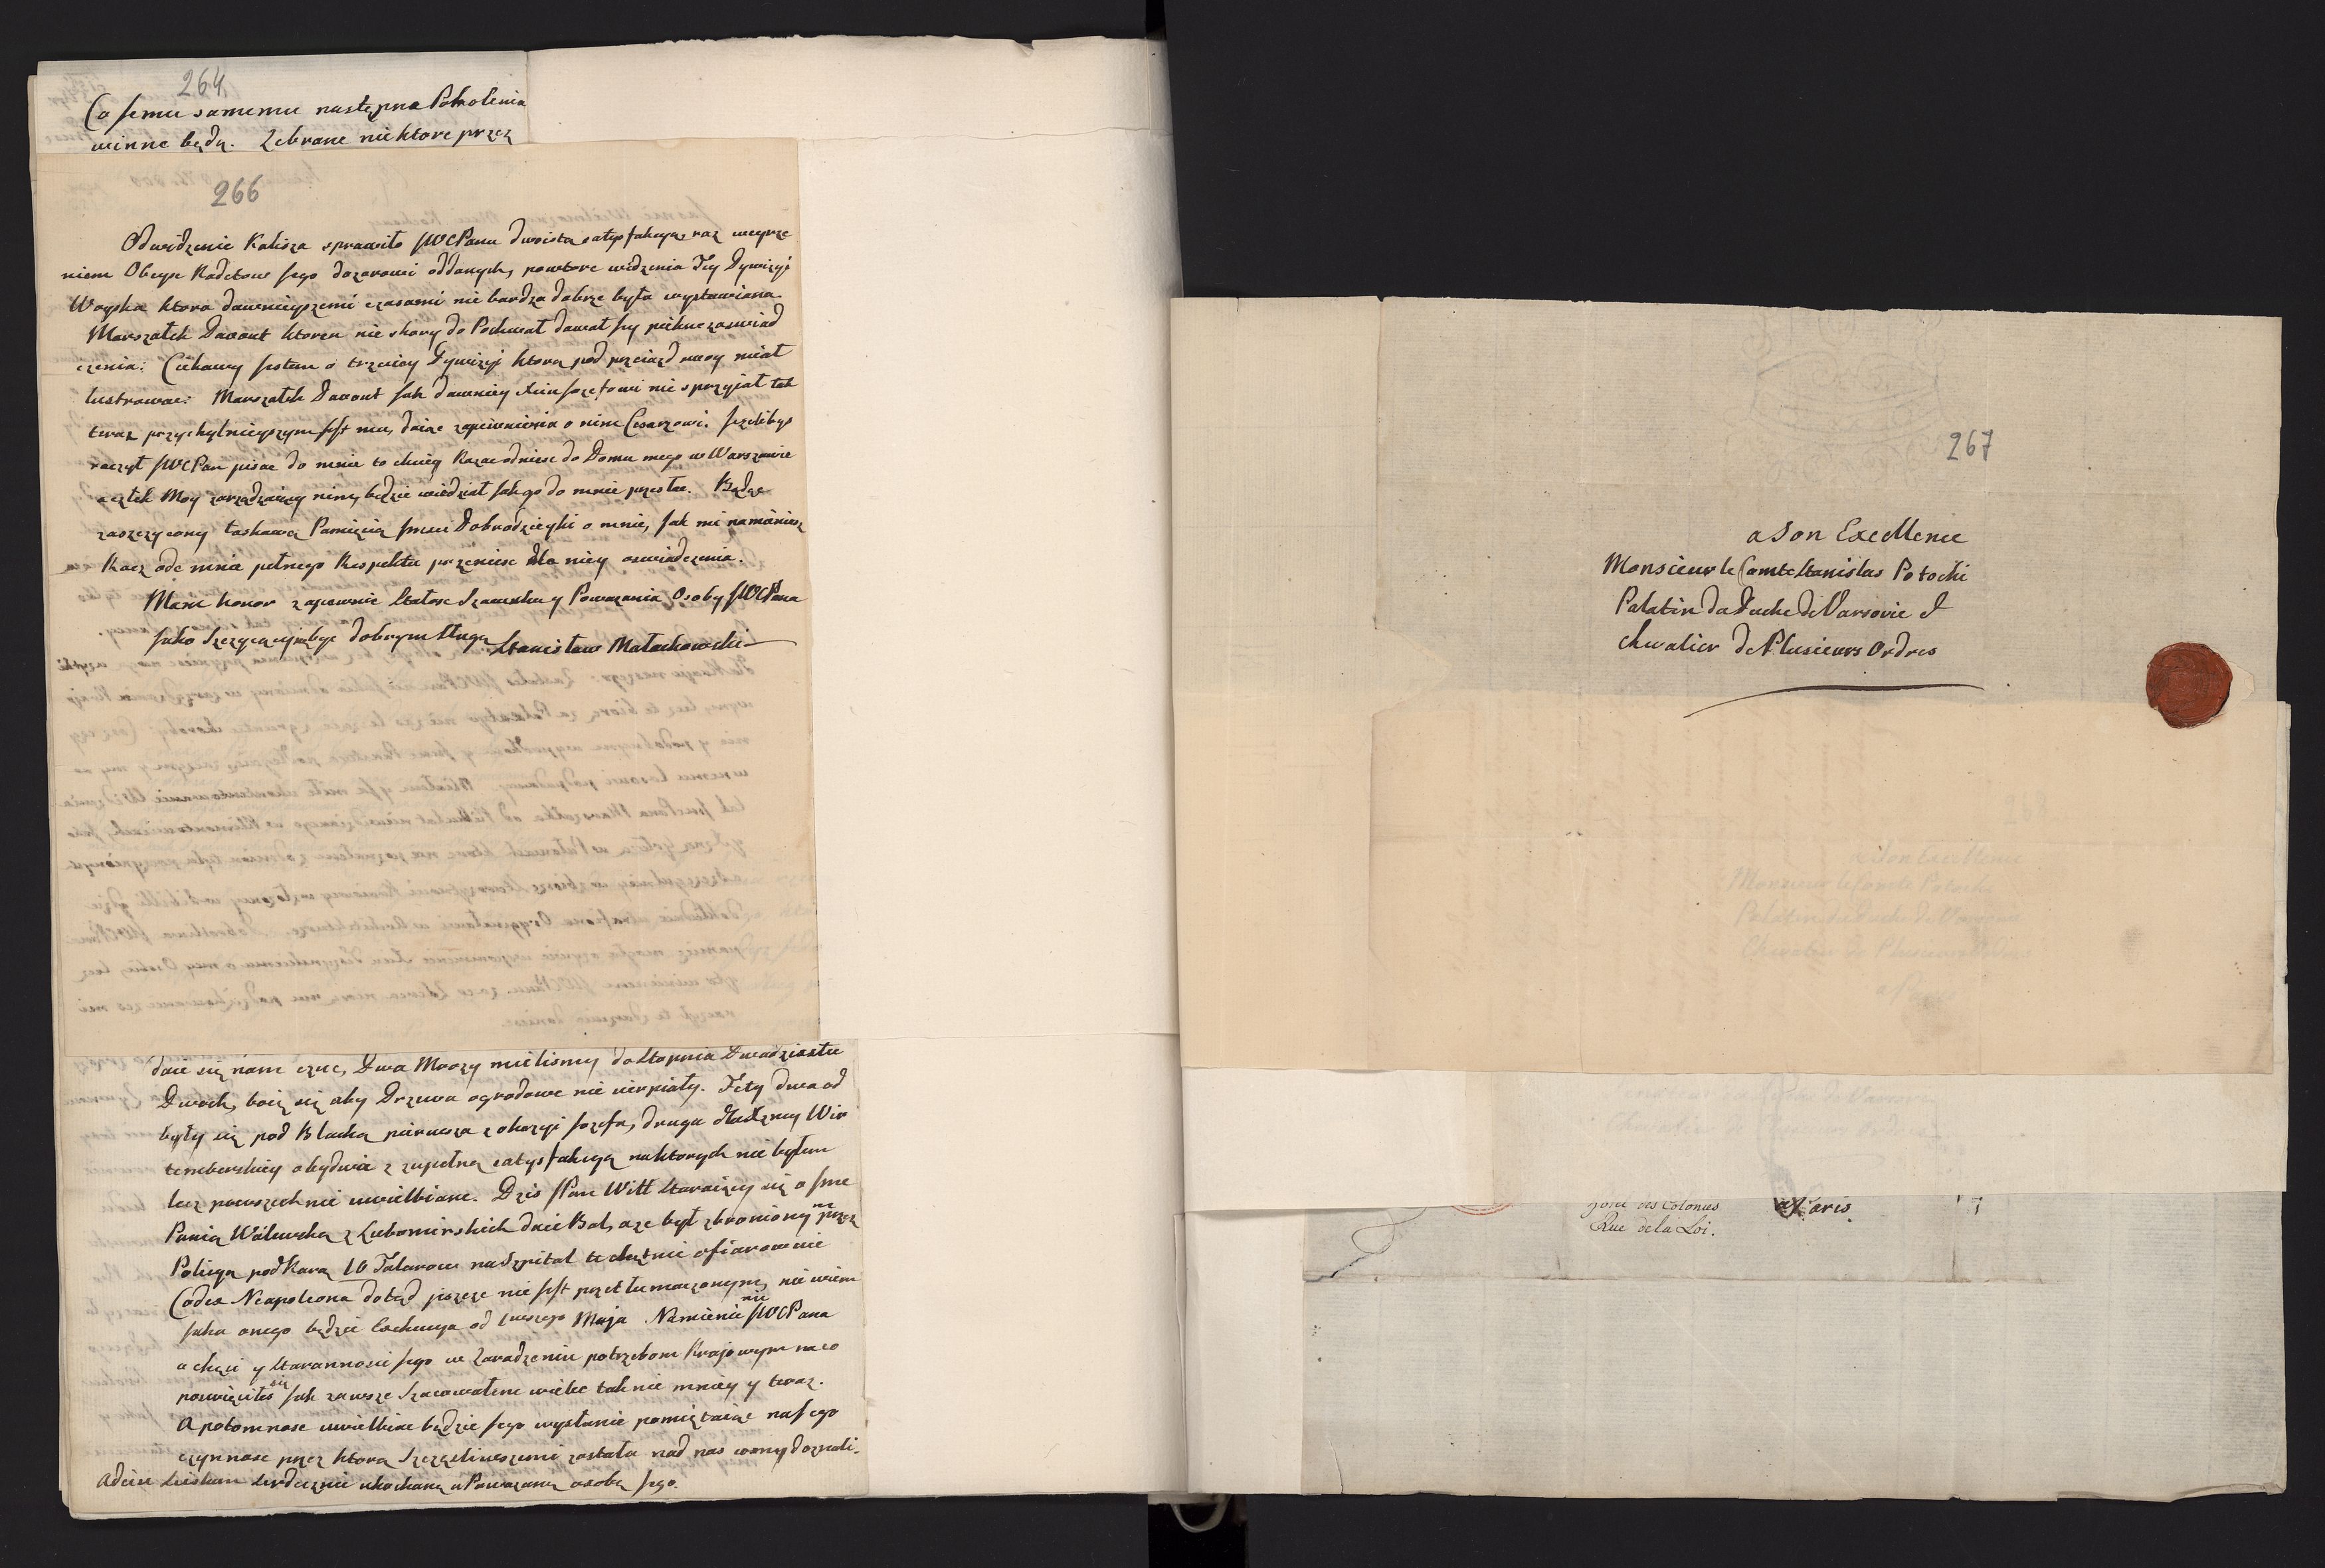 264
Co jemu samemu następne Pokolenia
winne będą. Zebrane niektore przez
266
Odwidzenie Kalisza sprawiło JWCPanu dwoistą satysfakcyą, raz weyrze
niem Obeyc Kadetow Jego dozorowi oddanych, powtore widzenia Tey Dywizyi
Woyska ktora dawnieyszemi czasami nie bardzo dobrze była wystawiana
Marszałek Davout ktoren nie skory do Pochwał dawał jey piękne zaswiad
czenia: Ciekawy jestem o trzeciey Dywizyi ktorą pod przeiazd nasz miał
lustrować: Marszałek Davout jak dawniey Xciu Jozefowi nie sprzyiał tak
teraz przychylnieyszym jest mu, daiąc zapewnienia o nim Cesarzowi. Jezeliby
raczył JWCPan pisac do mnie to chciey kazac odniesc do Domu mego w Warszawie
a człek Moy zarządzaiący nim, będzie wiedział jak go do mnie przesłac. Będąc
zaszczycony łaskawą Pamięcią Jmci Dobrodzieyki o mnie, jak mi namieniasz
Racz ode mnie pełnego Respektu przeniesc dla niey oswiadczenia.
Mam honor zapewnic Stałosc Szacunku y Powazania Osoby JWCPana
Jako Szczycący się bydz dobrym Sługą Stanisław Małachowski
daie się nam czuc, Dwa Mrozy mielismy do Stopnia Dwadziestu
Dwoch, boię się aby Drzewa ogrodowe nie cierpiały. Fety dwa od
były się pod Blachą pierwsza z okazyi Jozefa, druga Xiężney Wir
temberskiey obydwie z zupełną satysfakcyą na ktorych nie byłem
lecz powszechnie uwielbiane. Dzis JPan Witt Staraiący się o Jmc
Panią Walewską z Lubomirskich daie Bal, a ze był zbroniony przez
Policyą pod karą 10 Talarow na Szpital te chętnie ofiarowuie
Codex Neapoleona dotąd jeszcze nie jest przetłumaczonym, nie wiem
jaka onego będzie Exekucya od 1wszego Maja. Namienienie JWCPana
o chęci y Starannosci Jego w Zaradzeniu potrzebom Krajowym na co
poswięciłes się jak zawsze Szacowałem wielce tak nie mniey y teraz.
A potomnosc uwielbiac będzie Jego wysłanie pomiętaiąc na Jego
czynnosc przez ktorą Szczęsliwszemi została nad nas comy doznali.
Adein Sciskam Serdecznie ukochaną a Powazaną osobę Jego.
267
a Son Excellence
Monsieur le Comte Stanislas Potocki
Palatin du Duché de Varsovie et
chevalier de Plusieurs Ordres
a Son Excellence
Monsieur le Comte Potocki
Palatin du Duché de Varsovie
Chevalier de Plusieurs Ordres
a Paris
Chevalier de Plusieurs Ordres
Hotel des Colonies
a Paris
Rue de la Loi.